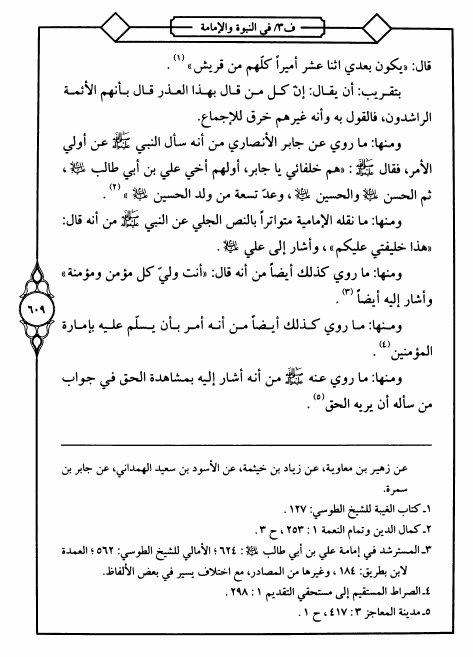 ف٣/ في النبوة والإمامة
قال: «يكون بعدي اثنا عشر أميراً كلّهم من قريش»(١).
بتقريب: أن يقال: إنّ كل من قال بهذا العذر قال بأنهم الأئمة
الراشدون، فالقول به وأنه غيرهم خرق للإجماع.
ومنها: ما روي عن جابر الأنصاري من أنه سأل النبي ﷺ عن أولي
الأمر، فقال ﷺ: «هم خلفائي يا جابر، أولهم أخي علي بن أبي طالب ﵇،
ثم الحسن ﵇ والحسين ﵇، وعدّ تسعة من ولد الحسين ﵇»(٢).
ومنها: ما نقله الإمامية متواتراً بالنص الجلي عن النبي ﷺ من أنه قال:
«هذا خليفتي عليكم»، وأشار إلى علي ﵇.
ومنها: ما روي كذلك أيضاً من أنه قال: «أنت وليّ كل مؤمن ومؤمنة»
وأشار إليه أيضاً(٣).
ومنها: ما روي كذلك أيضاً من أنه أمر بأن يسلّم عليه بإمارة
المؤمنين(٤).
ومنها: ما روي عنه ﷺ من أنه أشار إليه بمشاهدة الحق في جواب
من سأله أن يريه الحق(٥).
٦٠٩
عن زهير بن معاوية، عن زياد بن خيثمة، عن الأسود بن سعيد الهمداني، عن جابر بن
سمرة.
١ـ كتاب الغيبة للشيخ الطوسي: ١٢٧.
٢ـ كمال الدين وتمام النعمة ١: ٢٥٣، ح ٣.
٣ـ المسترشد في إمامة علي بن أبي طالب ﵇: ٦٢٤؛ الأمالي للشيخ الطوسي: ٥٦٢؛ العمدة
لابن بطريق: ١٨٤، وغيرها من المصادر، مع اختلاف يسير في بعض الألفاظ.
٤ـ الصراط المستقيم إلى مستحقي التقديم ١: ٢٩٨.
٥ـ مدينة المعاجز ٣: ٤١٧، ح ١.